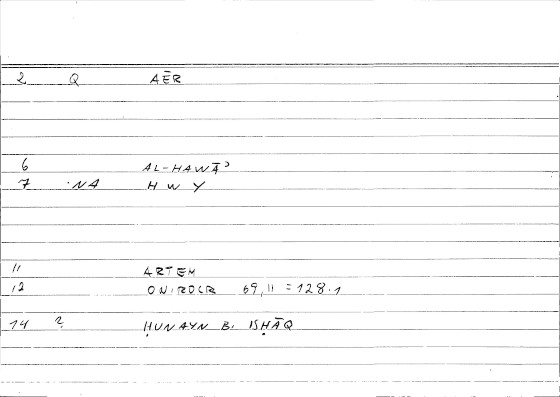 2 Q AĒR
6 AL-HAWĀʾ
7 NA H W Y
11 ARTEM
12 ONIROCR 69,11 = 128.1
14 2 ḤUNAYN B. ISḤĀQ